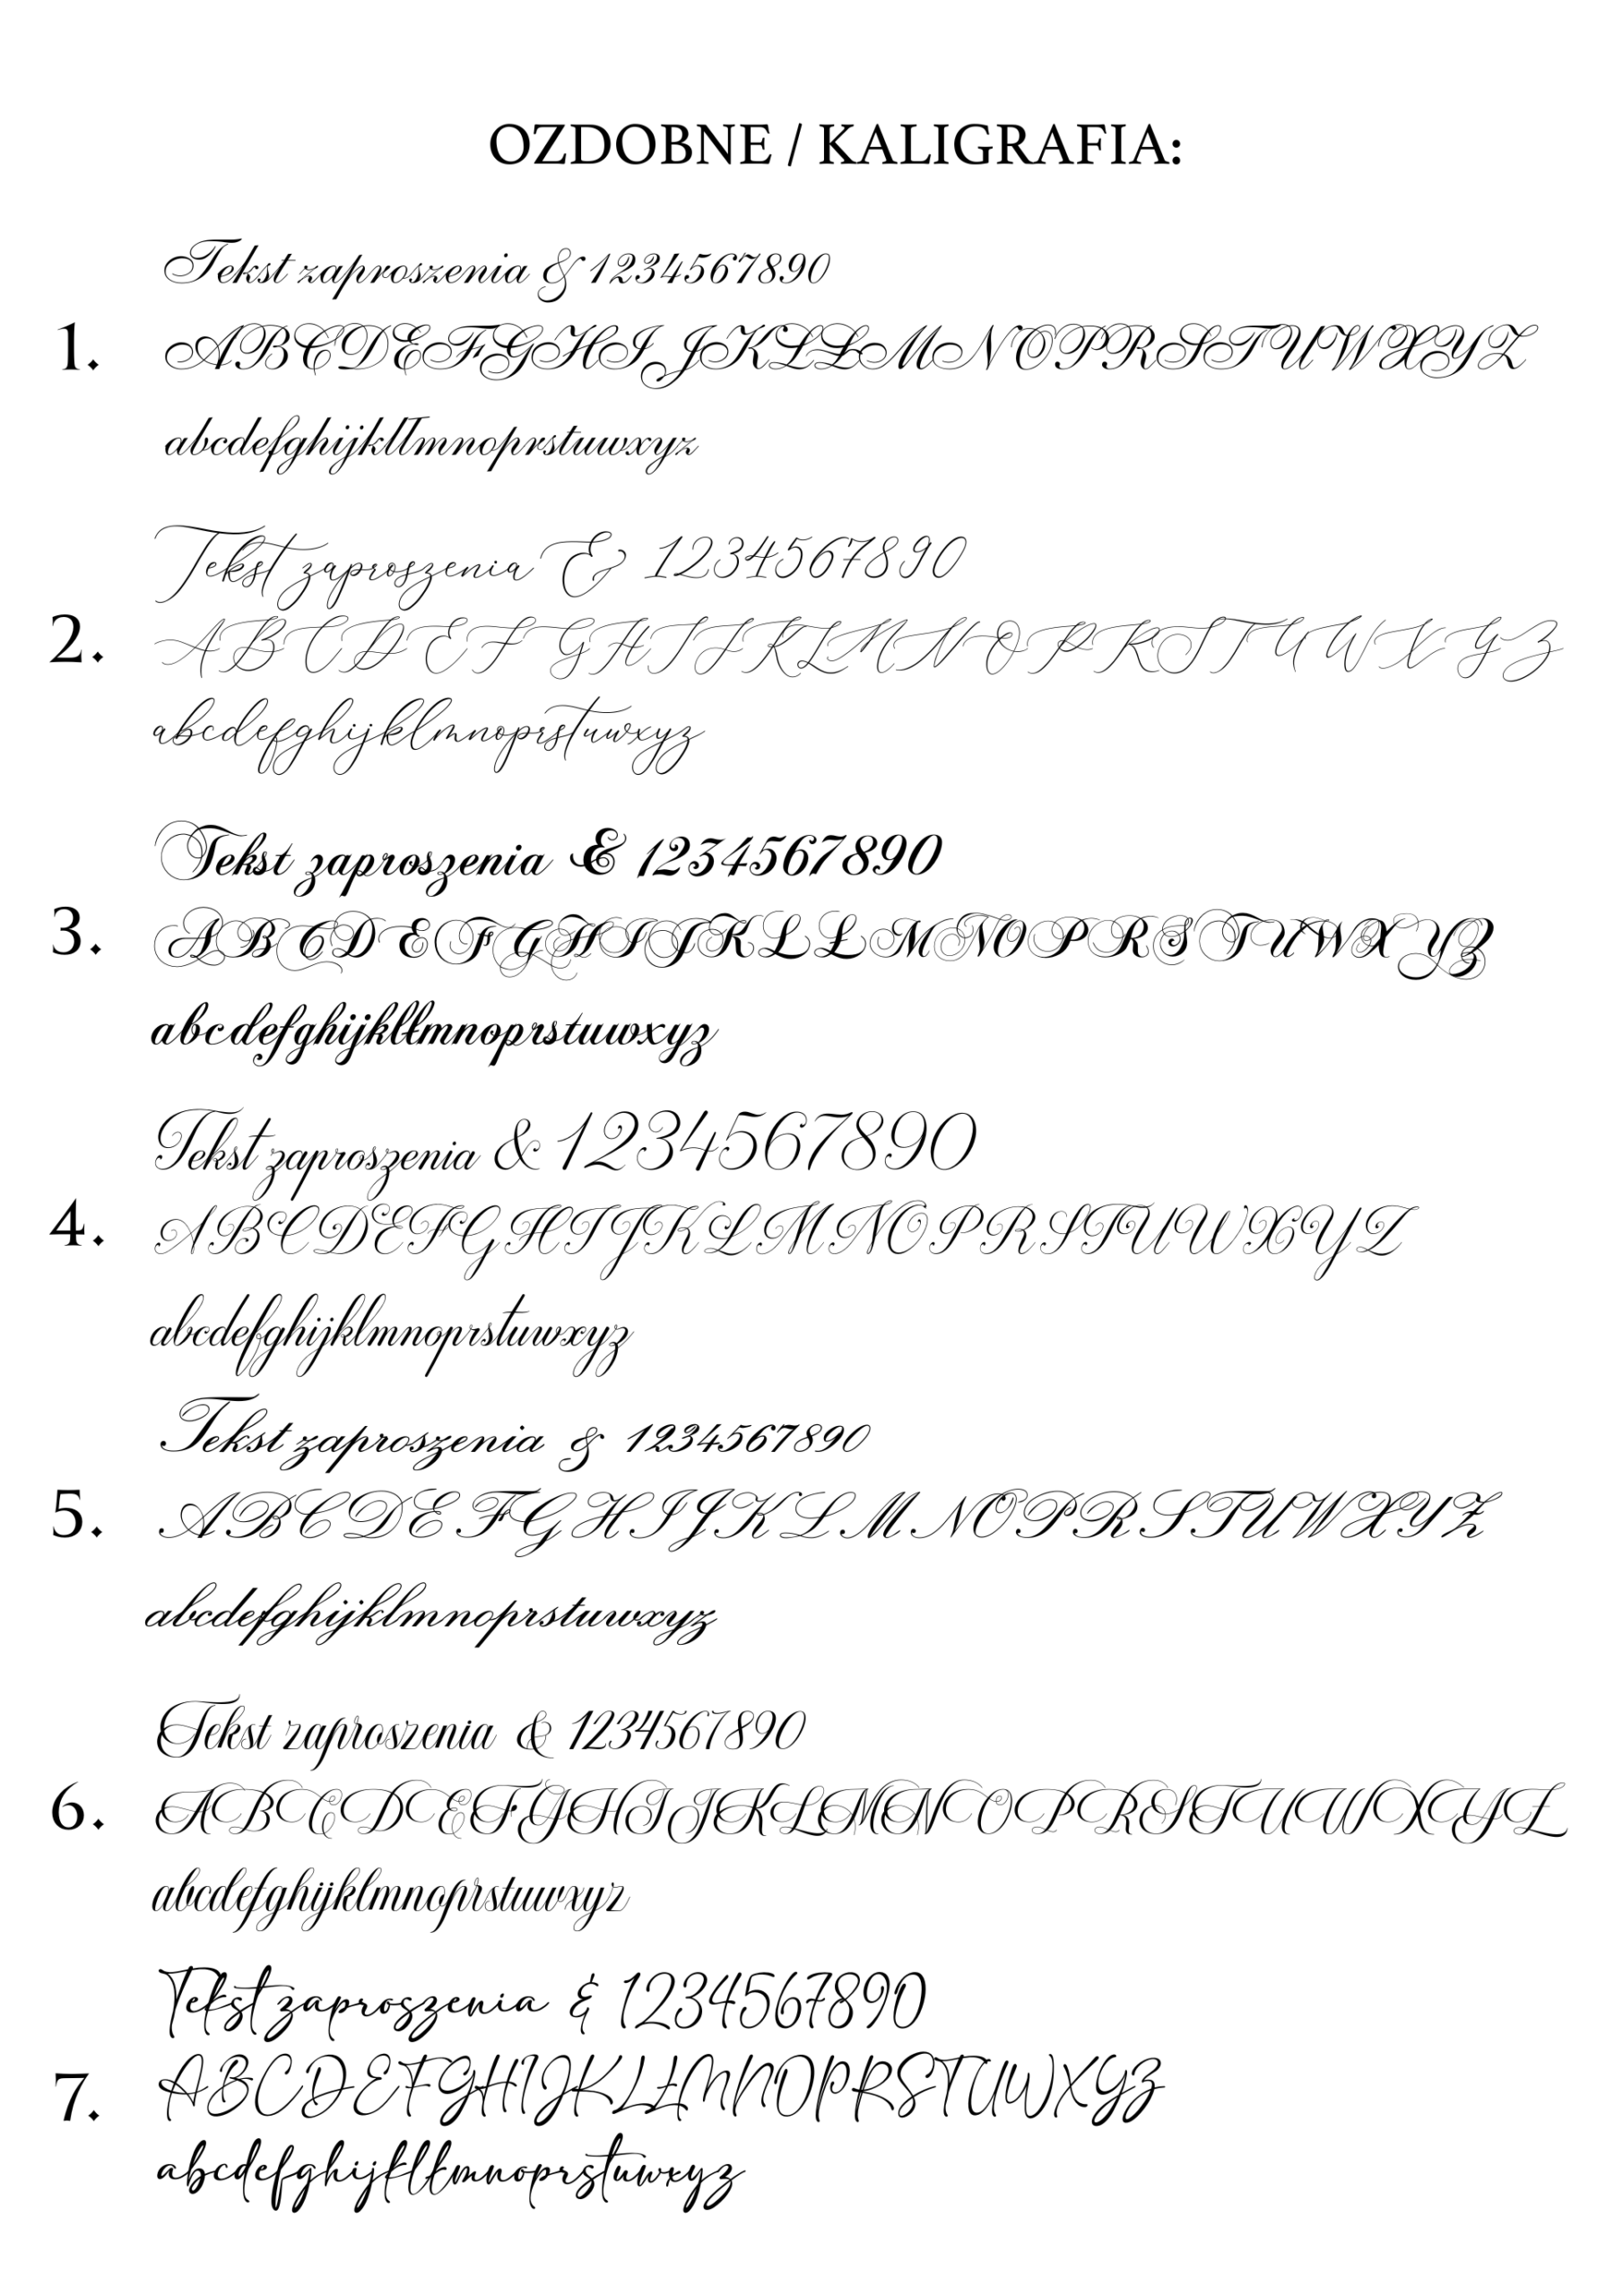 OZDOBNE / KALIGRAFIA:
Tekst zaproszenia & 1234567890
1.
ABCDEFGHIJKLŁMNOPRSTUWXYZ
abcdefghijklłmnoprstuwxyz
Tekst zaproszenia & 1234567890
2.
ABCDEFGHIJKLMNOPRSTUWXYZ
abcdefghijklmnoprstuwxyz
Tekst zaproszenia & 1234567890
3.
ABCDEFGHIJKLŁMNOPRSTUWXYZ
abcdefghijklłmnoprstuwxyz
Tekst zaproszenia & 1234567890
4.
ABCDEFGHIJKLMNOPRSTUWXYZ
abcdefghijklmnoprstuwxyz
Tekst zaproszenia & 1234567890
5.
ABCDEFGHIJKLMNOPRSTUWXYZ
abcdefghijklmnoprstuwxyz
Tekst zaproszenia & 1234567890
6.
ABCDEFGHIJKLMNOPRSTUWXYZ
abcdefghijklmnoprstuwxyz
Tekst zaproszenia & 1234567890
7.
ABCDEFGHIJKLŁMNOPRSTUWXYZ
abcdefghijklłmnoprstuwxyz